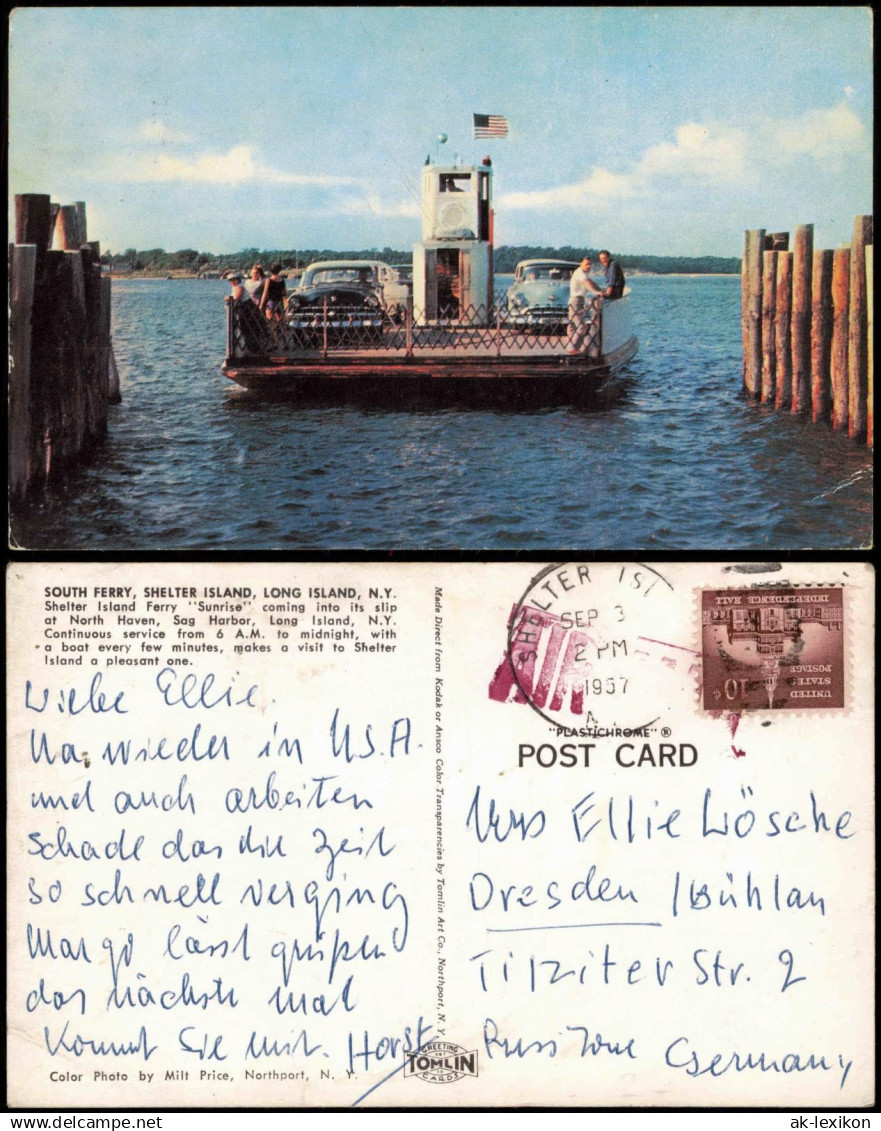 SOUTH FERRY, SHELTER ISLAND, LONG ISLAND, N.Y.
Shelter Island Ferry "Sunrise" coming into its slip
at North Haven, Sag Harbor, Long Island, N.Y.
Continuous service from 6 A.M. to midnight, with
a boat every few minutes, makes a visit to Shelter
Island a pleasant one.
Liebe Ellie.
Na wieder in U.S.A.
und auch arbeiten
schade das die Zeit
so schnell verging
Margo lässt grüßen
das nächste mal
kommt Sie mit. Horst.
Color Photo by Milt Price, Northport, N. Y.
GREETING
TOMLIN
CARDS
Made Direct from Kodak or Ansco Color Transparencies by Tomlin Art Co., Northport, N. Y.
SHELTER ISL
SEP 3
2 PM
1957
INDEPENDENCE HALL
10¢
UNITED
STATES
POSTAGE
"PLASTICHROME" ®
POST CARD
Mrs Ellie Wösche
Dresden / Bühlau
Tilziter Str. 2
Russ Zone Germany
ak-lexikon